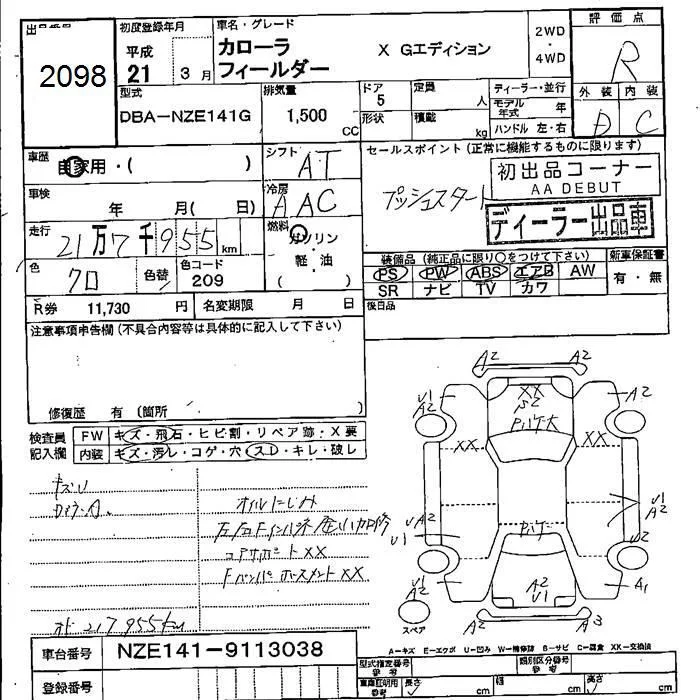 出品番号
2098
初度登録年月
平成
21 3月
車名・グレード
カローラ
フィールダー
X Gエディション
2WD
・
4WD
評価点
R
外装 内装
D C
型式
DBA-NZE141G
排気量
1,500
CC
ドア
5
形状
定員
人
積載
kg
ディーラー・並行
モデル年式 年
ハンドル 左・右
車歴
自家用・( )
シフト
AT
車検
年 月( 日)
冷房
AAC
走行
21万7千955km
燃料
ガソリン
軽・油
( )
色
クロ
色替
色コード
209
R券 11,730 円
名変期限 月 日
セールスポイント(正常に機能するものに限ります)
プッシュスタート
初出品コーナー
AA DEBUT
ディーラー出品車
装備品(純正品に限り○をつけて下さい)
PS PW ABS エアB AW
SR ナビ TV カワ
新車保証書
有・無
後日品
注意事項申告欄(不具合内容等は具体的に記入して下さい)
修復歴 有 (箇所 )
検査員
記入欄
FW キズ・飛石・ヒビ割・リペア跡・X要
内装 キズ・汚レ・コゲ・穴・スレ・キレ・破レ
キズU
オイルにじみ
左/右Fインパネ
コアサポートXX
XX
オド 217955km
A2
A2
U1
A2
XX
A2
XX
XX
U1
A2
U2
A1
U1
A2
U1
U1
A2
A2
U1
A2
A3
スペア
A-キズ E-エクボ U-凹み W-補修跡 B-サビ C-腐食 XX-交換済
車台番号
NZE141-9113038
登録番号
型式指定番号
参考
類別区分番号
参考
車庫証明用
参考
長さ cm
幅 cm
高さ cm